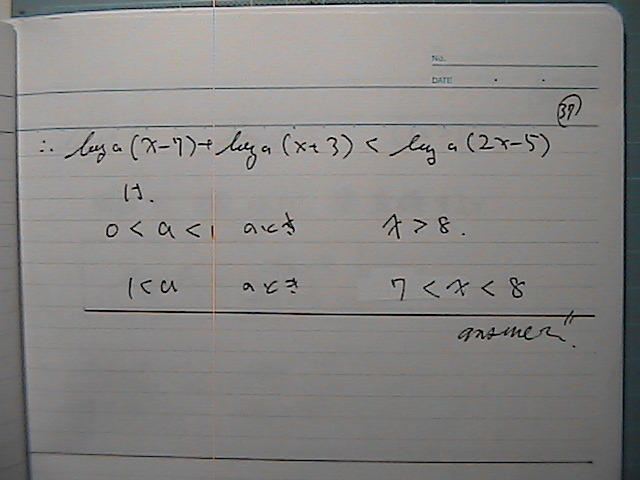 No.
DATE . .
37
∴ log a (x-7) + log a (x+3) < log a (2x-5)
は.
0 < a < 1 aのとき x > 8.
1 < a aのとき 7 < x < 8
answer〃.